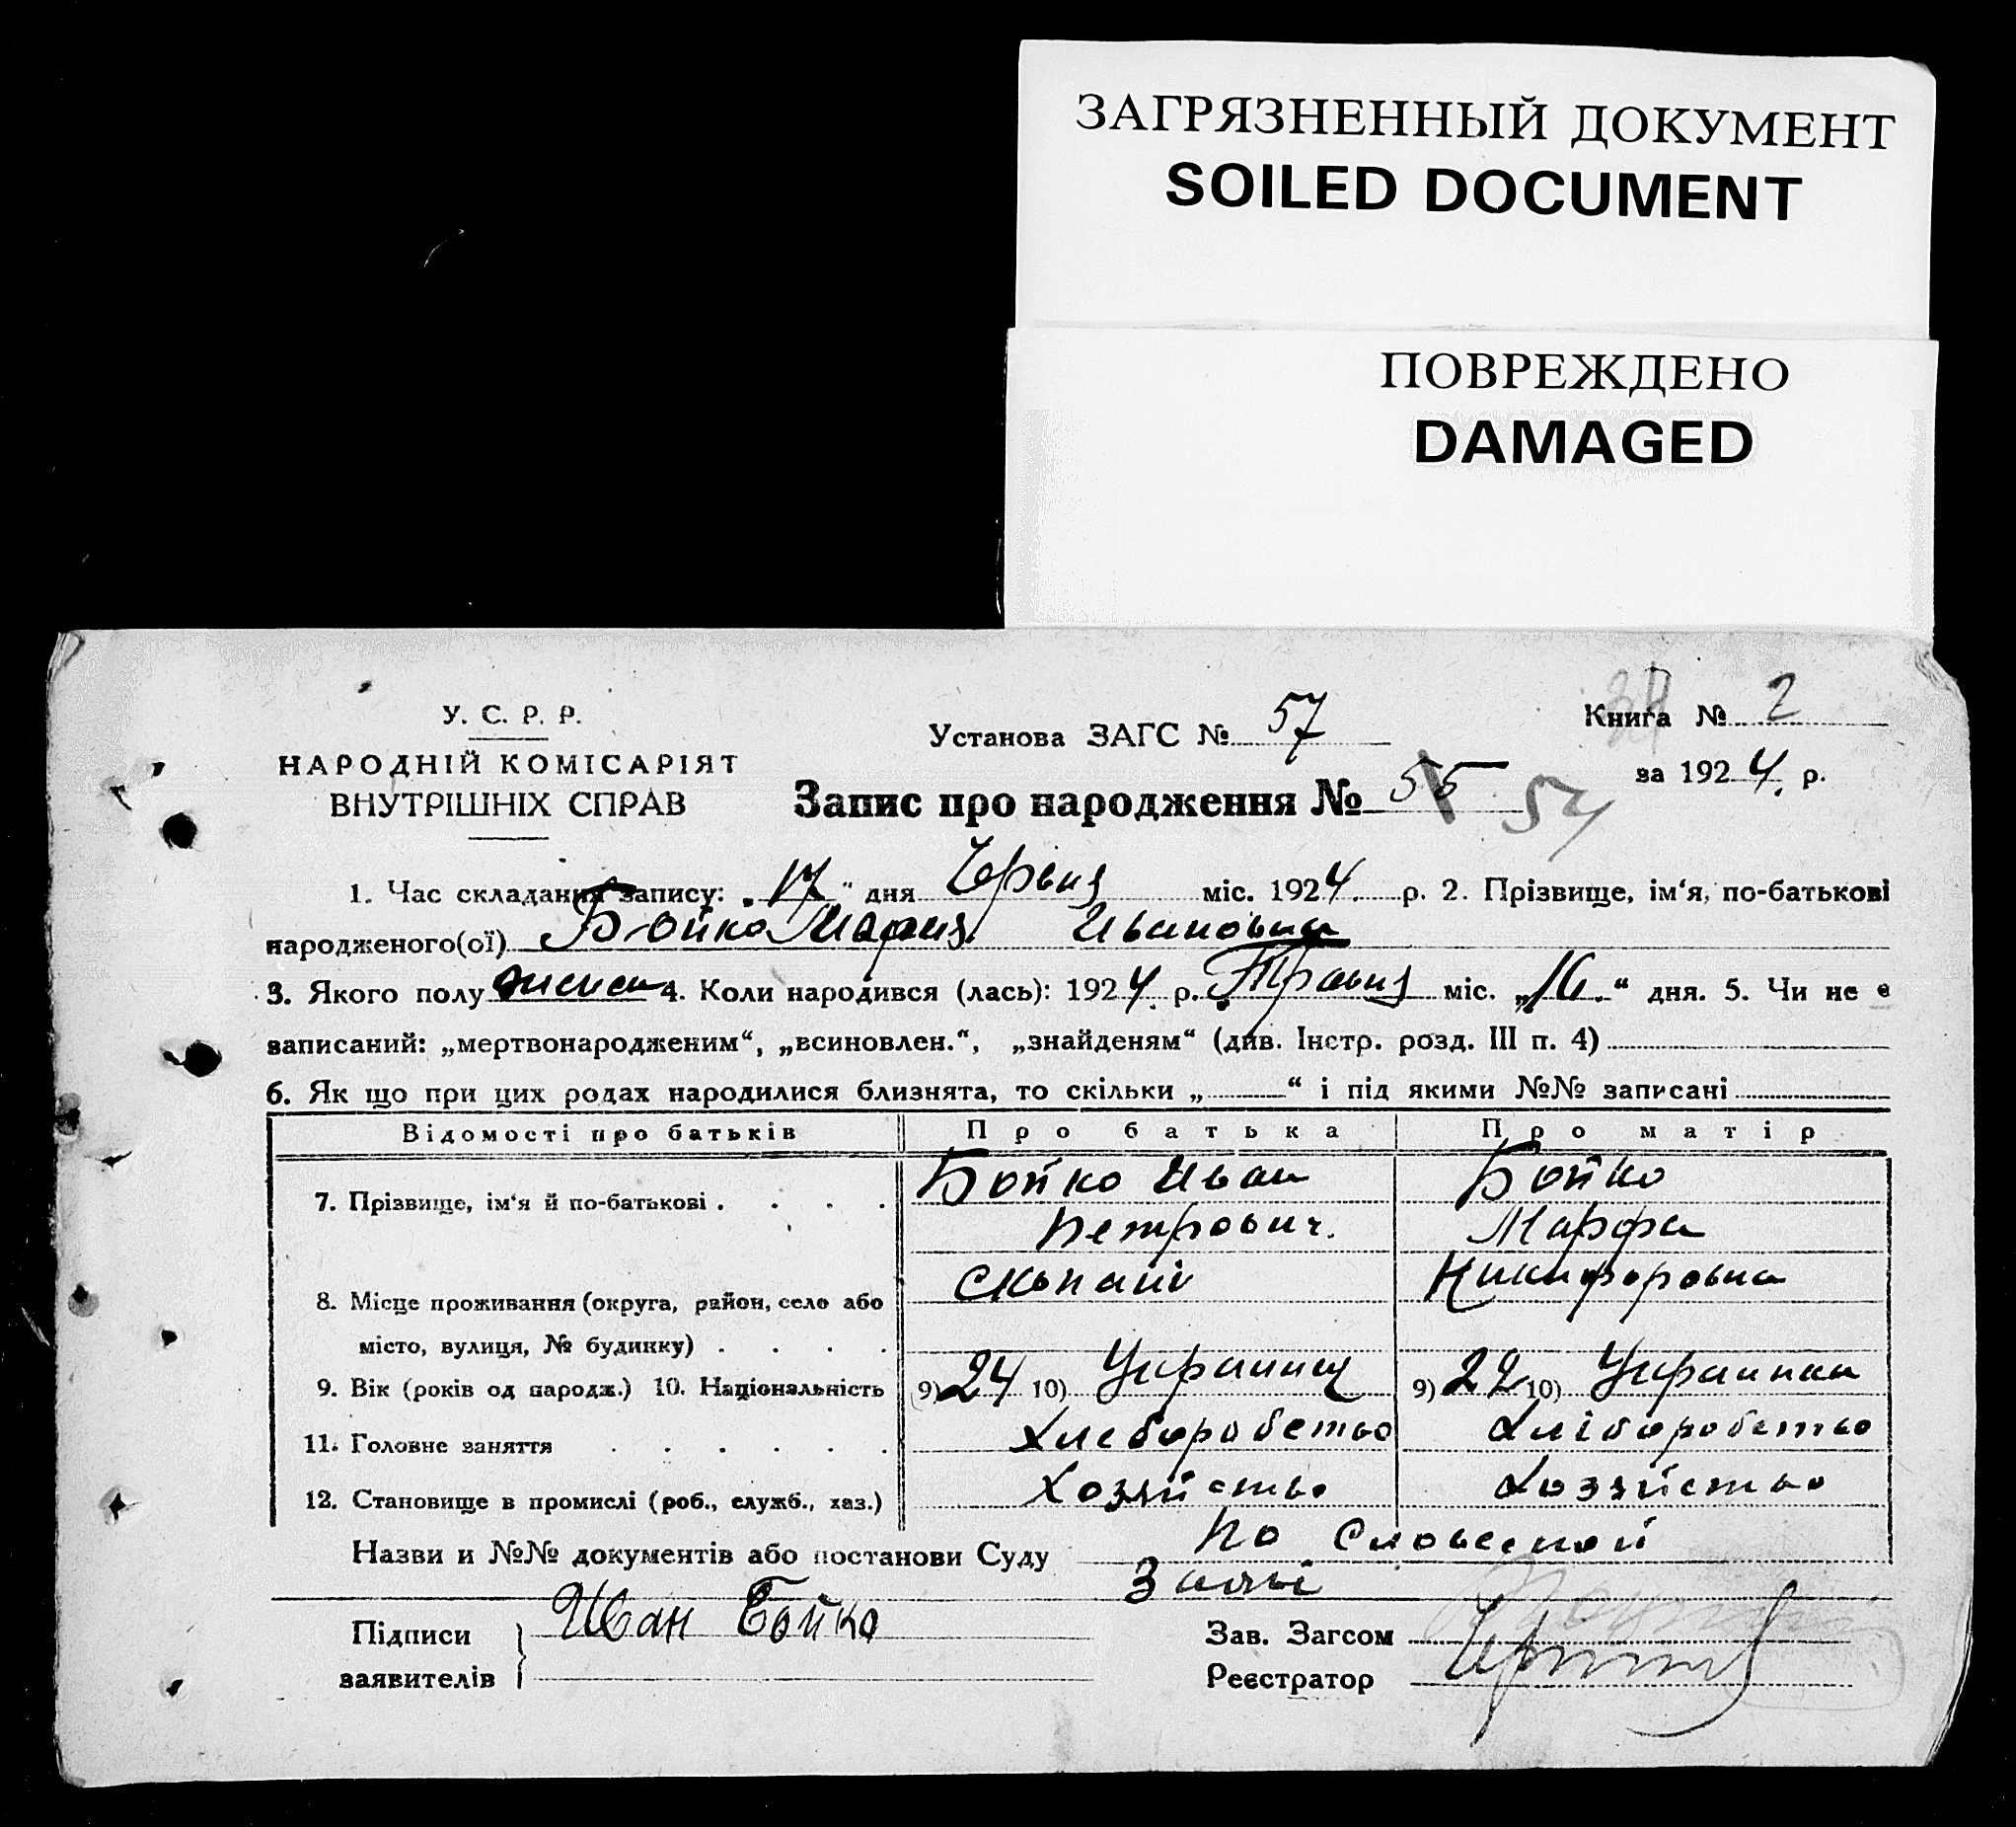 ЗАГРЯЗНЕННЫЙ ДОКУМЕНТ
SOILED DOCUMENT
ПОВРЕЖДЕНО
DAMAGED
У. С. Р. Р.
НАРОДНІЙ КОМІСАРІЯТ
ВНУТРІШНІХ СПРАВ
Установа ЗАГС № 57
Книга № 2
за 1924 р.
Запис про народження № 55 54
1. Час складання запису: „17" дня Червня міс. 1924 р. 2. Прізвище, ім‘я, по-батькові
народженого(ої) Бойко Мария Ивановна
3. Якого полу женск 4. Коли народився (лась): 1924 р. Травня міс. „16“ дня. 5. Чи не є
записаний: „мертвонародженим“, „всиновлен.“, „знайденям“ (див. Інстр. розд. III п. 4)
6. Як що при цих родах народилися близнята, то скільки „ “ і під якими №№ записані
Відомості про батьків Про батька Про матір
7. Прізвище, ім‘я й по-батькові Бойко Иван Бойко
Петрович. Марфа
Никифоровна
8. Місце проживання (округа, район, село або
місто, вулиця, № будинку)
9. Вік (років од народж.) 10. Національність 9) 24 10) Украинец 9) 22 10) Украинка
11. Головне заняття Хлеборобство Хліборобство
12. Становище в промислі (роб., служб., хаз.) Хозяйство Хозяйство
Назви и №№ документів або постанови Суду По Словесной
Заяві
Підписи Иван Бойко
заявителів
Зав. Загсом
Реєстратор